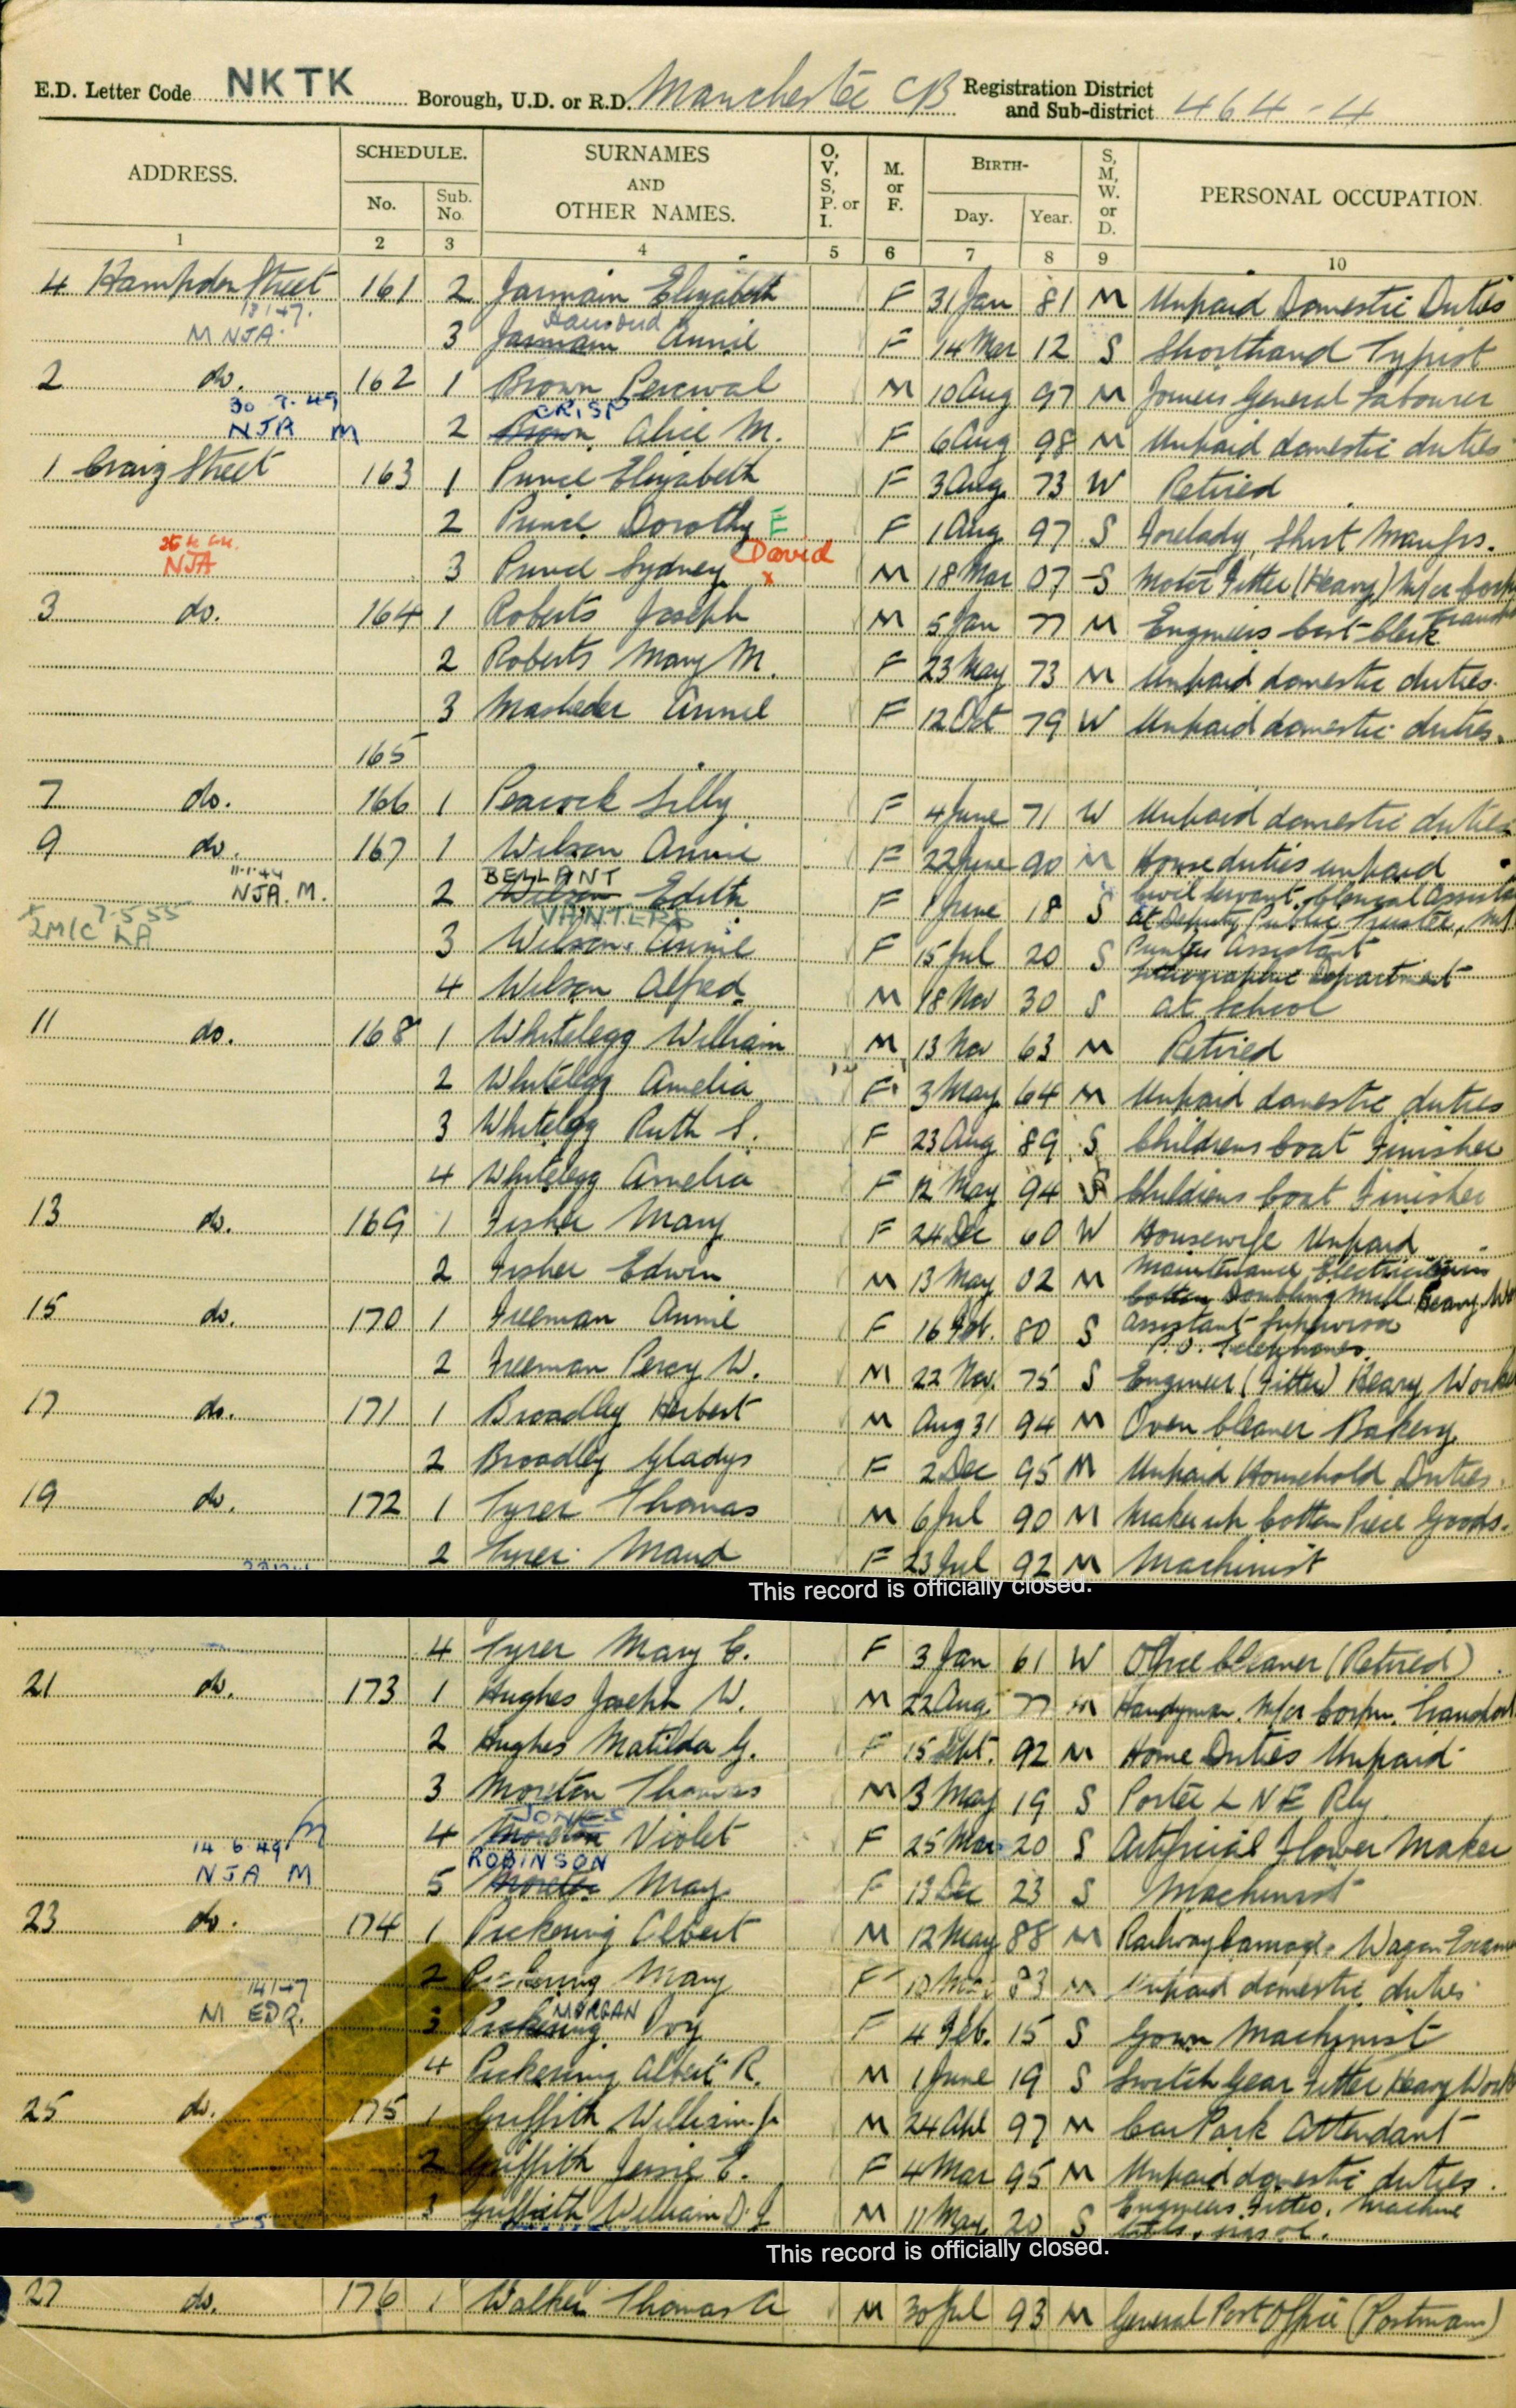 E.D. Letter Code NKTK Borough, U.D. or R.D. Manchester CB Registration District and Sub-district 464-4
ADDRESS. SCHEDULE. No. Sub. No. SURNAMES AND OTHER NAMES. O, V, S, P. or I. M. or F. BIRTH- Day. Year. S, M, W. or D. PERSONAL OCCUPATION.
1 2 3 4 5 6 7 8 9 10
4 Hampden Street 161 2 Jarmain Elizabeth F 31 Jan 81 M Unpaid Domestic Duties
M NJA. 3 Jarmain Annie F 14 Mar 12 S Shorthand Typist
2 do. 162 1 Brown Percival M 10 Aug 97 M Joiners General Labourer
30.7.49
CRISP
NJA M 2 Brown Alice M. F 6 Aug 98 M Unpaid domestic duties
1 Craig Street 163 1 Prince Elizabeth F 3 Aug 73 W Retired
2 Prince Dorothy E F 1 Aug 97 S Forelady, Shirt Manfrs.
David
NJA 3 Prince Sydney x M 18 Mar 07 S Motor Fitter (Heavy) M/cr Corp
3 do. 164 1 Roberts Joseph M 5 Jan 77 M Engineers Cost Clerk
2 Roberts Mary M. F 23 May 73 M Unpaid domestic duties.
3 Masheder Annie F 12 Oct 79 W Unpaid domestic duties.
165
7 do. 166 1 Peacock Lilly F 4 June 71 W Unpaid domestic duties
9 do. 167 1 Wilson Annie F 22 June 90 M House duties unpaid
11.1.44
BELLANT
NJA. M. 2 Wilson Edith F 1 June 18 S Civil Servant, Clerical Assista
at Deputy Public Trustee, M/
7.5.55
2M/C LA 3 Wilson Annie F 15 Jul 20 S Printers Assistant
Lithographic Department
4 Wilson Alfred M 18 Nov 30 S at School
11 do. 168 1 Whitelegg William M 13 Nov 63 M Retired
2 Whitelegg Amelia F 3 May 64 M Unpaid domestic duties
3 Whitelegg Ruth S. F 23 Aug 89 S Childrens Coat Finisher
4 Whitelegg Amelia F 12 May 94 S Childrens Coat Finisher
13 do. 169 1 Fisher Mary F 24 Dec 60 W Housewife Unpaid
2 Fisher Edwin M 13 May 02 M Maintenance Electrician
Cotton Doubling Mill. Heavy Wo
15 do. 170 1 Freeman Annie F 16 Feb. 80 S Assistant Supervisor
P.O. Telephones
2 Freeman Percy W. M 22 Nov. 75 S Engineer (Fitter) Heavy Worke
17 do. 171 1 Broadley Herbert M Aug 31 94 M Oven Cleaner Bakery
2 Broadley Gladys F 2 Dec 95 M Unpaid Household Duties.
19 do. 172 1 Tyrer Thomas M 6 Jul 90 M Maker up Cotton Piece Goods.
2 Tyrer Maud F 23 Jul 92 M Machinist
This record is officially closed.
4 Tyrer Mary E. F 3 Jan 61 W Office Cleaner (Retired)
21 do. 173 1 Hughes Joseph W. M 22 Aug 77 M Handyman. M/cr Corpn. Transport
2 Hughes Matilda G. F 15 Sept. 92 M Home Duties Unpaid
3 Moreton Thomas M 3 May 19 S Porter L N E Rly
JONES
4 Moreton Violet F 25 Mar 20 S Artificial Flower Maker
14.6.49
ROBINSON
NJA M 5 Moreton May F 13 Dec 23 S Machinist
23 do. 174 1 Pickering Albert M 12 May 88 M Railway Carriage. Wagon Exam
2 Pickering Mary F 83 M Unpaid domestic duties
14/1/47
MORGAN
M EDR. 3 Pickering Ivy F 4 Feb. 15 S Gown Machinist
4 Pickering Albert R. M 1 June 19 S Switch Gear Fitter Heavy Work
25 do. 175 1 Griffith William J. M 24 Apl 97 M Car Park Attendant
2 Griffith Jessie E. F 4 Mar 95 M Unpaid domestic duties.
3 Griffith William D. J. M 11 May 20 S Engineers Fitter. Machine
This record is officially closed.
27 do. 176 1 Walker Thomas A M 30 Jul 93 M General Post Office (Postman)